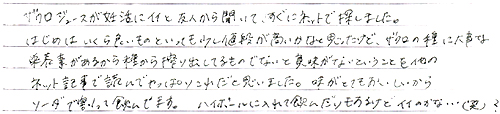 ザクロジュースが妊活にイイと友人から聞いて、すぐにネットで探しました。
はじめは いくら良いものといっても少し値段が高いかなと思ったけど、ザクロの種に大事な
栄養素があるから種から搾り出してるものでないと意味がないということを他の
ネット記事で読んでやっぱりこれだと思いました。味がとてもおいしいから
ソーダで割って飲んでます。 ハイボールに入れて飲んだりもするけどイイのかな…(笑)